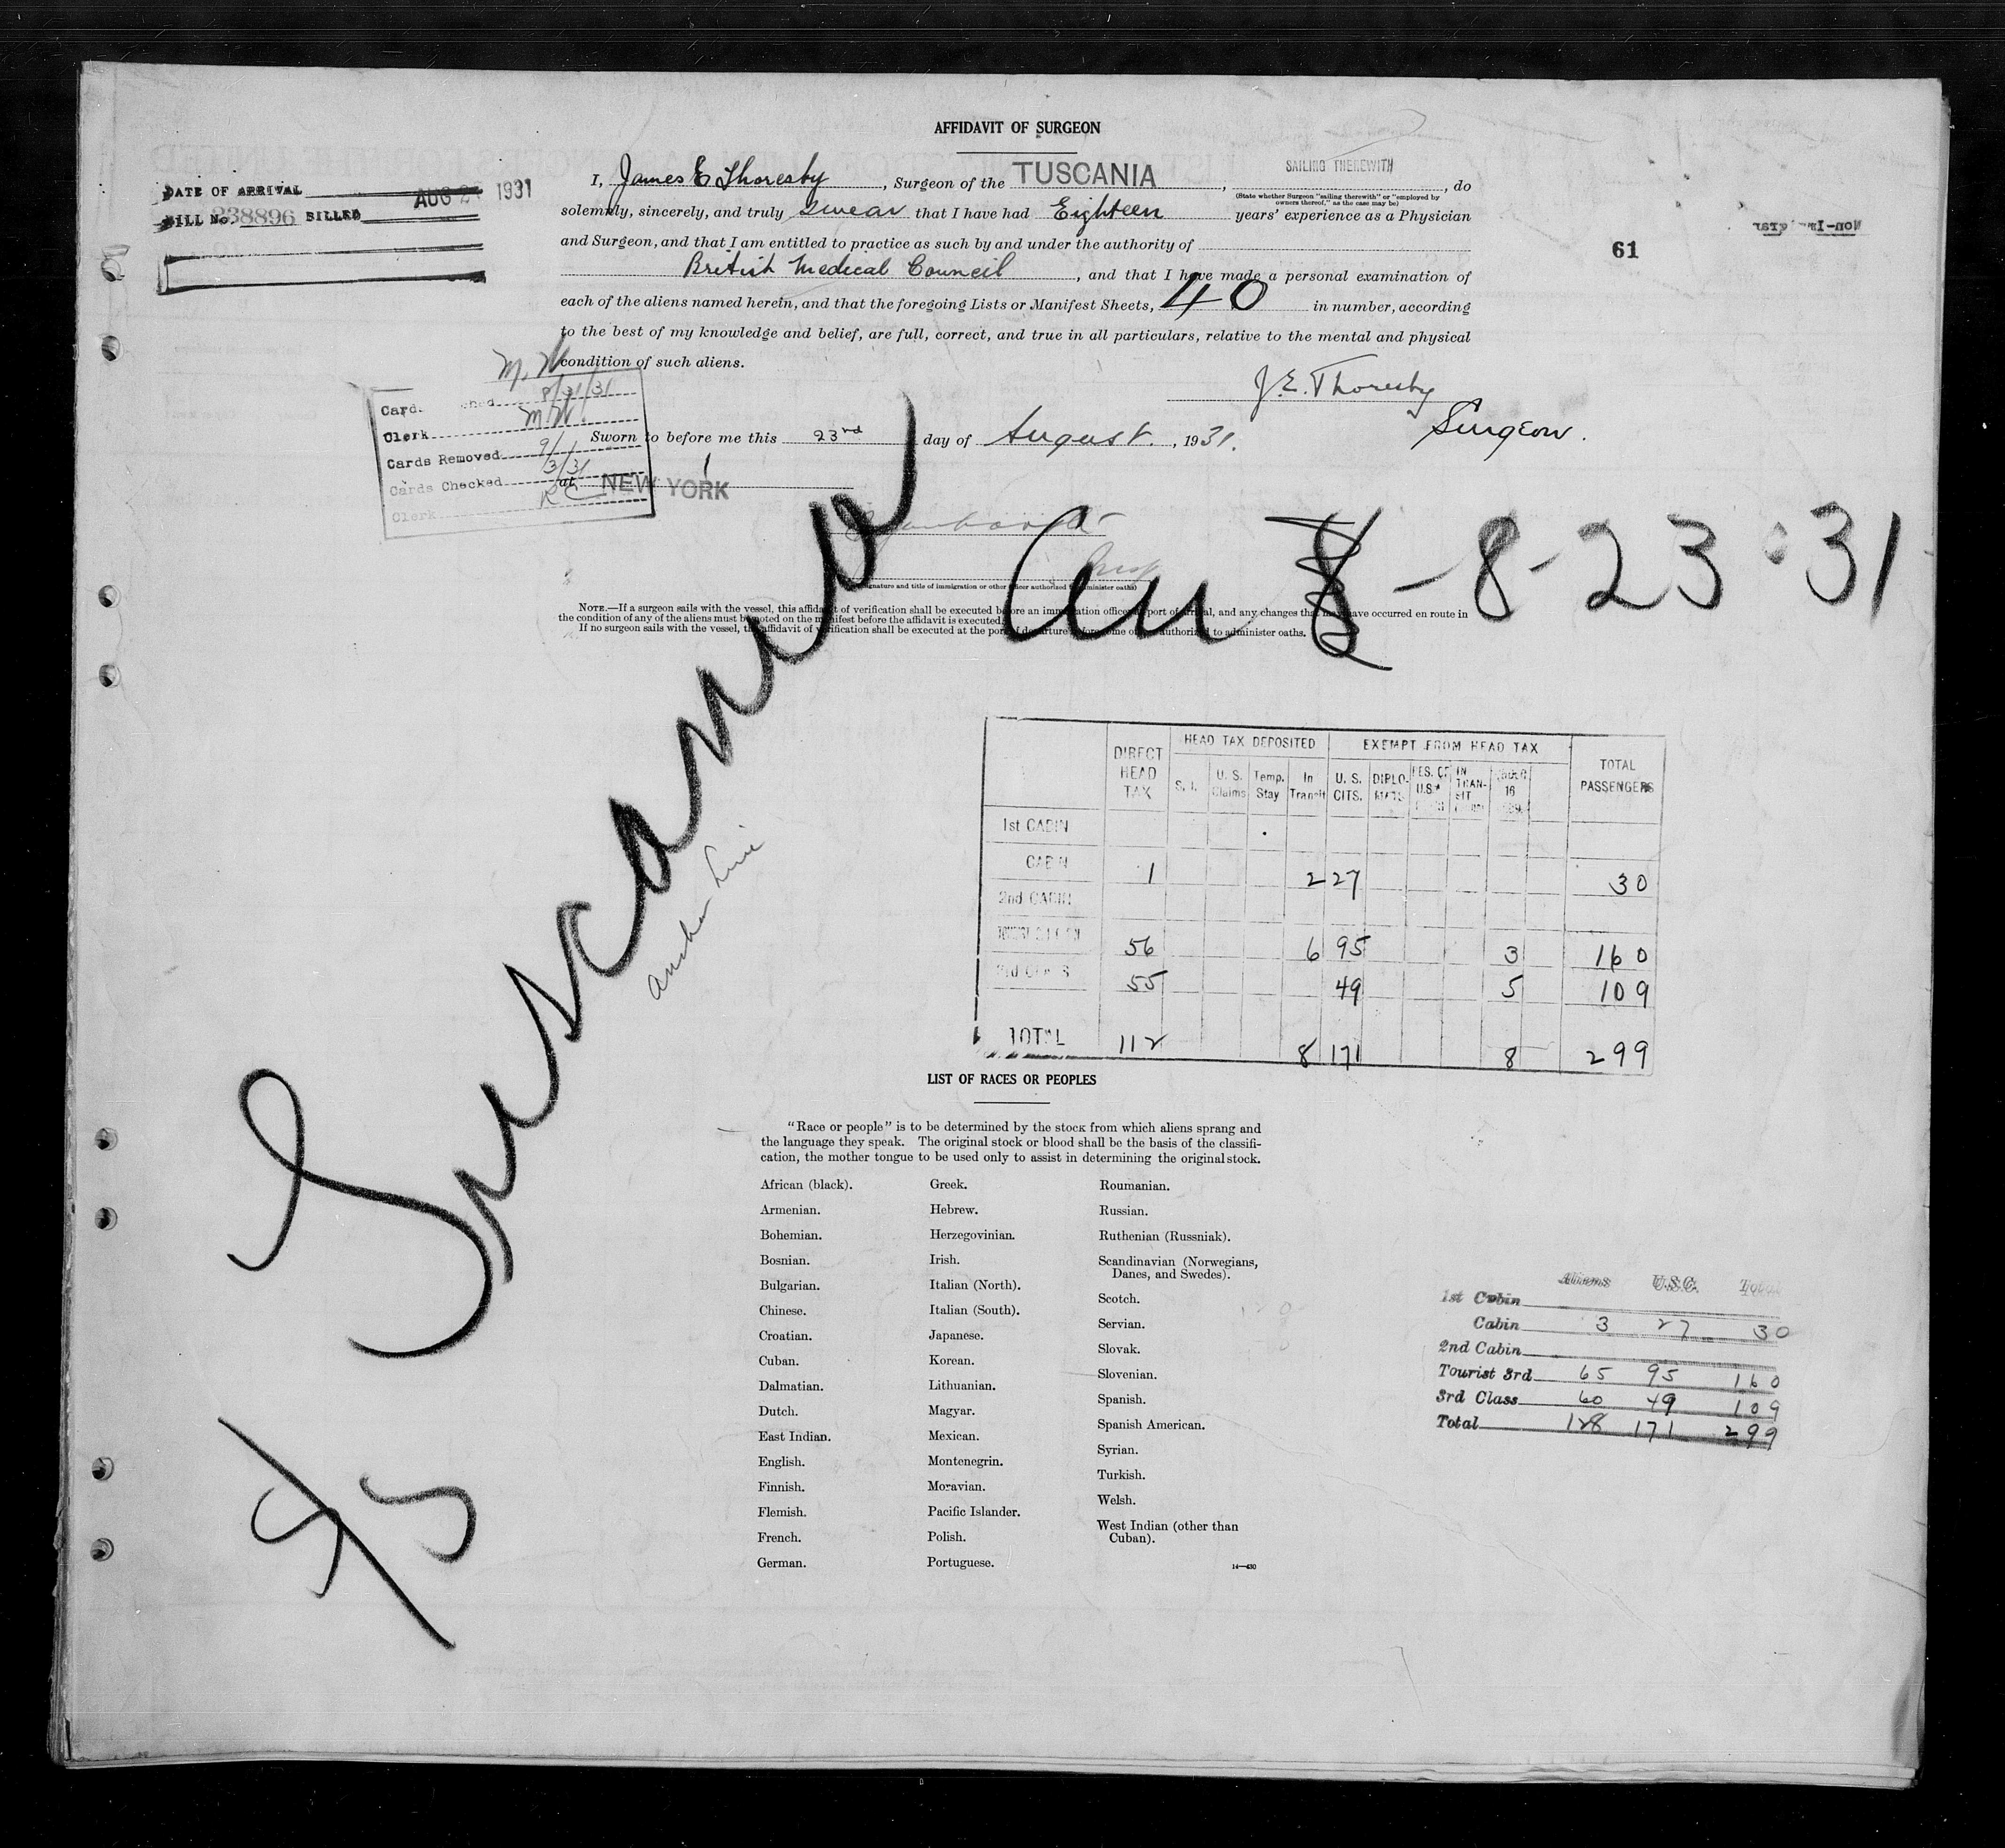 AFFIDAVIT OF SURGEON
DATE OF ARRIVAL AUG 1931
BILL No. 238896 BILLED
I, James E Thoresby, Surgeon of the TUSCANIA, SAILING THEREWITH, do
(State whether Surgeon "sailing therewith" or "employed by
owners thereof," as the case may be)
solemnly, sincerely, and truly swear that I have had Eighteen years' experience as a Physician
and Surgeon, and that I am entitled to practice as such by and under the authority of
British Medical Council, and that I have made a personal examination of
each of the aliens named herein, and that the foregoing Lists or Manifest Sheets, 40 in number, according
to the best of my knowledge and belief, are full, correct, and true in all particulars, relative to the mental and physical
condition of such aliens.
61
Non-Im
M.W.
Card. 8/31/31
Clerk M.W.
Cards Removed 9/1
Cards Checked 3/31
Clerk
J.E. Thoresby
Surgeon.
Sworn to before me this 23rd day of August, 1931.
at NEW YORK
(Signature and title of immigration or other officer authorized to administer oaths)
NOTE.—If a surgeon sails with the vessel, this affidavit of verification shall be executed before an immigration officer at port of arrival, and any changes that may have occurred en route in
the condition of any of the aliens must be noted on the manifest before the affidavit is executed.
If no surgeon sails with the vessel, the affidavit of verification shall be executed at the port of departure before some officer authorized to administer oaths.
8-23-31
S/S Tuscania
Anchor Line
DIRECT HEAD TAX HEAD TAX DEPOSITED EXEMPT FROM HEAD TAX TOTAL PASSENGERS
S. I. U. S. Claims Temp. Stay In Transit U. S. CITS. DIPLOMATS RES. OF U.S. IN TRANSIT UNDER 16
1st CABIN
CABIN 1 2 27 30
2nd CABIN
56 6 95 3 160
3rd CLASS 55 49 5 109
TOTAL 112 8 171 8 299
LIST OF RACES OR PEOPLES
"Race or people" is to be determined by the stock from which aliens sprang and
the language they speak. The original stock or blood shall be the basis of the classifi-
cation, the mother tongue to be used only to assist in determining the original stock.
African (black).
Armenian.
Bohemian.
Bosnian.
Bulgarian.
Chinese.
Croatian.
Cuban.
Dalmatian.
Dutch.
East Indian.
English.
Finnish.
Flemish.
French.
German.
Greek.
Hebrew.
Herzegovinian.
Irish.
Italian (North).
Italian (South).
Japanese.
Korean.
Lithuanian.
Magyar.
Mexican.
Montenegrin.
Moravian.
Pacific Islander.
Polish.
Portuguese.
Roumanian.
Russian.
Ruthenian (Russniak).
Scandinavian (Norwegians,
Danes, and Swedes).
Scotch.
Servian.
Slovak.
Slovenian.
Spanish.
Spanish American.
Syrian.
Turkish.
Welsh.
West Indian (other than
Cuban).
14—430
Aliens U.S.C. Total
1st Cabin
Cabin 3 27 30
2nd Cabin
Tourist 3rd 65 95 160
3rd Class 60 49 109
Total 128 171 299